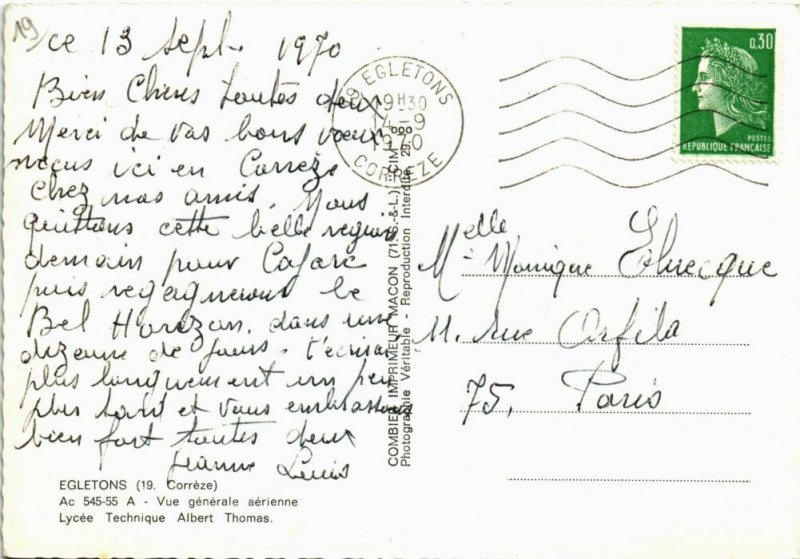 19
ce 13 Sept. 1970
Bien Chères toutes deux
Merci de vos bons vœux
reçus ici en Corrèze
chez nos amis. Nous
quittons cette belle région
demain pour Cajarc
puis regagnerons le
Bel Horizon, dans une
dizaine de jours. t'écrirai
plus longuement un peu
plus tard et vous embrassons
bien fort toutes deux
Jeanne Louis
EGLETONS (19. Corrèze)
Ac 545-55 A - Vue générale aérienne
Lycée Technique Albert Thomas.
COMBIER IMPRIMEUR MACON (71. S.-&-L.) CIM
Photographie Véritable - Reproduction Interdite
19 EGLETONS
19H30
14-9
1970
CORREZE
0,30
POSTES
REPUBLIQUE FRANÇAISE
Melle Monique
11. rue Orfila
75. Paris